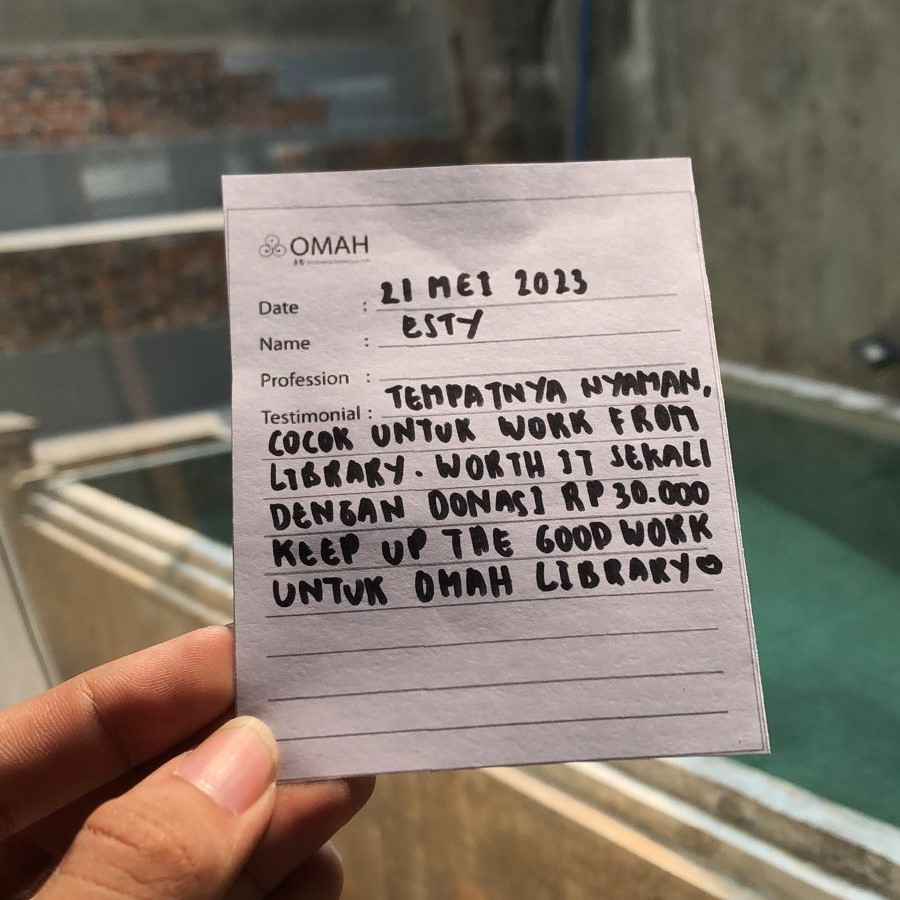 OMAH
Date : 21 MEI 2023
Name : ESTY
Profession :
Testimonial : TEMPATNYA NYAMAN,
COCOK UNTUK WORK FROM
LIBRARY. WORTH IT SEKALI
DENGAN DONASI RP 30.000
KEEP UP THE GOOD WORK
UNTUK OMAH LIBRARY